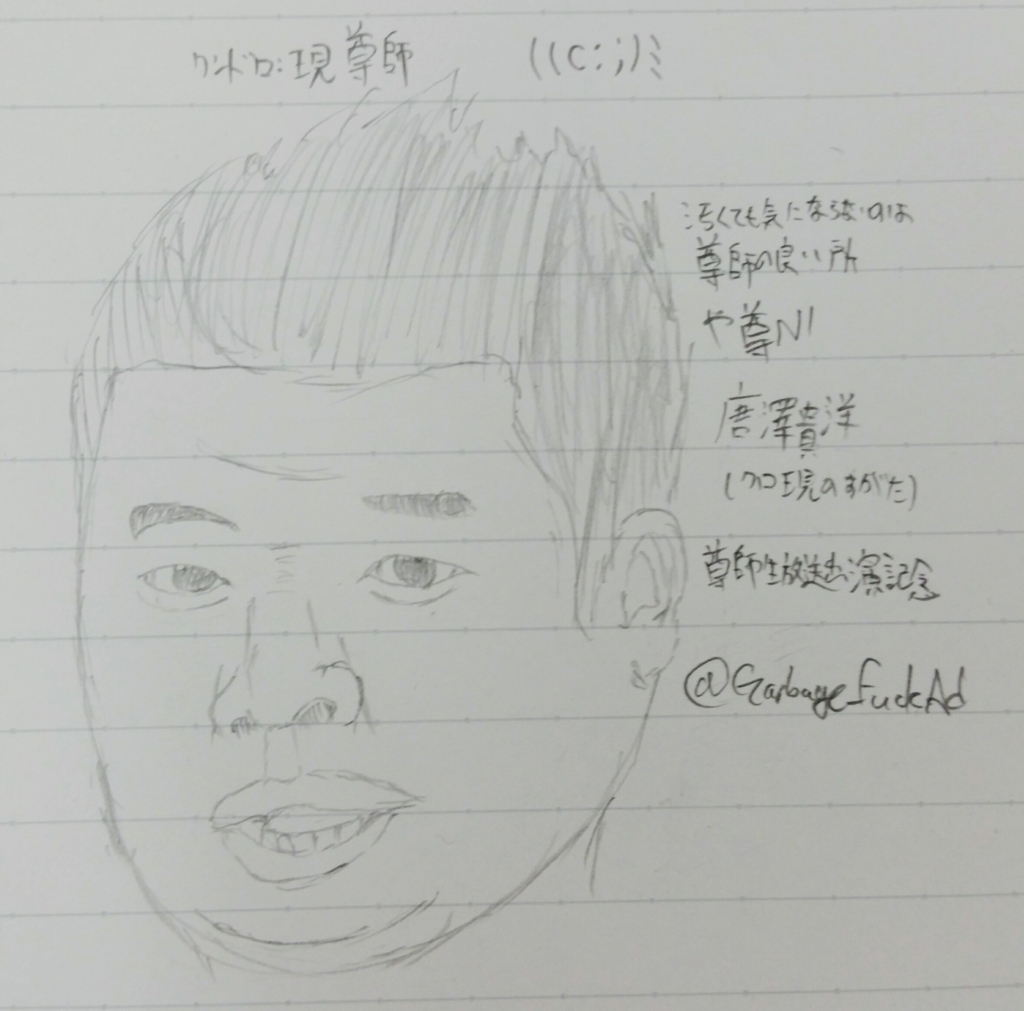 クンドロ:現尊師　((C:;)ミ
汚くても気にならないのは
尊師の良い所
や尊N!
唐澤貴洋
(クロ現のすがた)
尊師生放送出演記念
@Garbage_fuckAd